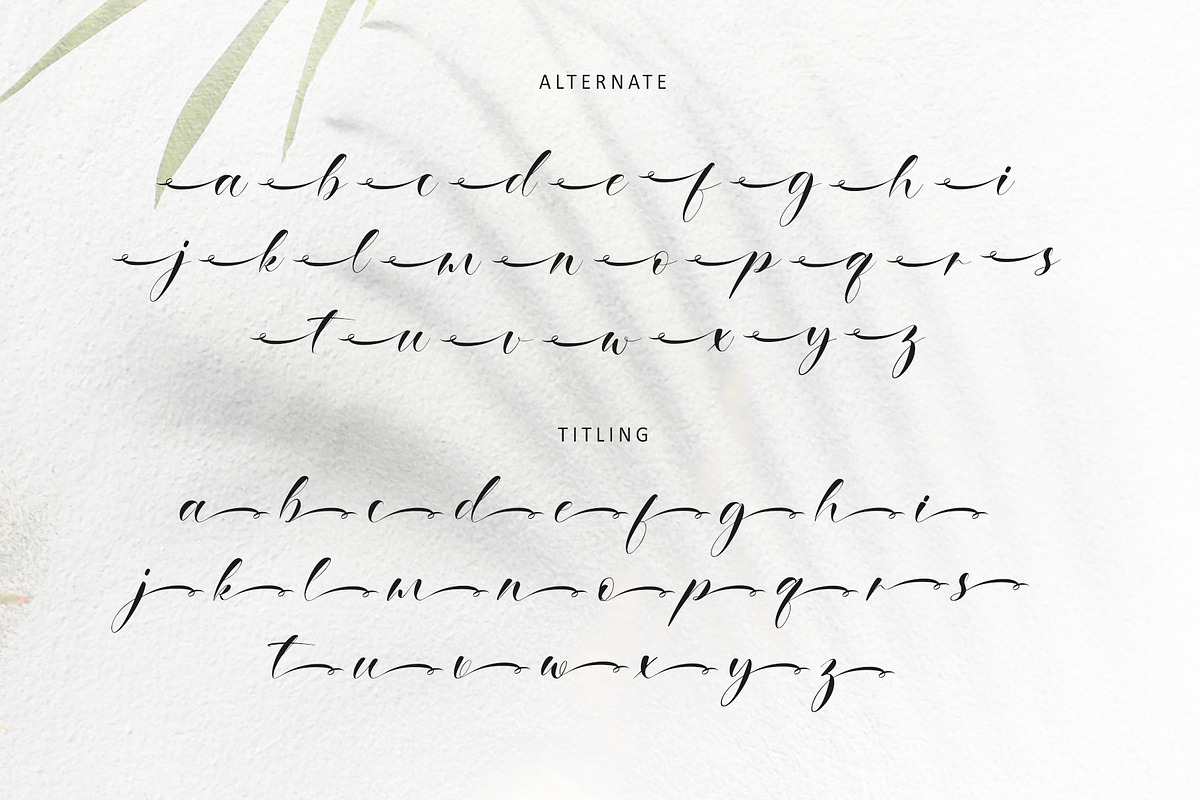 ALTERNATE
a b c d e f g h i
j k l m n o p q r s
t u v w x y z
TITLING
a b c d e f g h i
j k l m n o p q r s
t u v w x y z